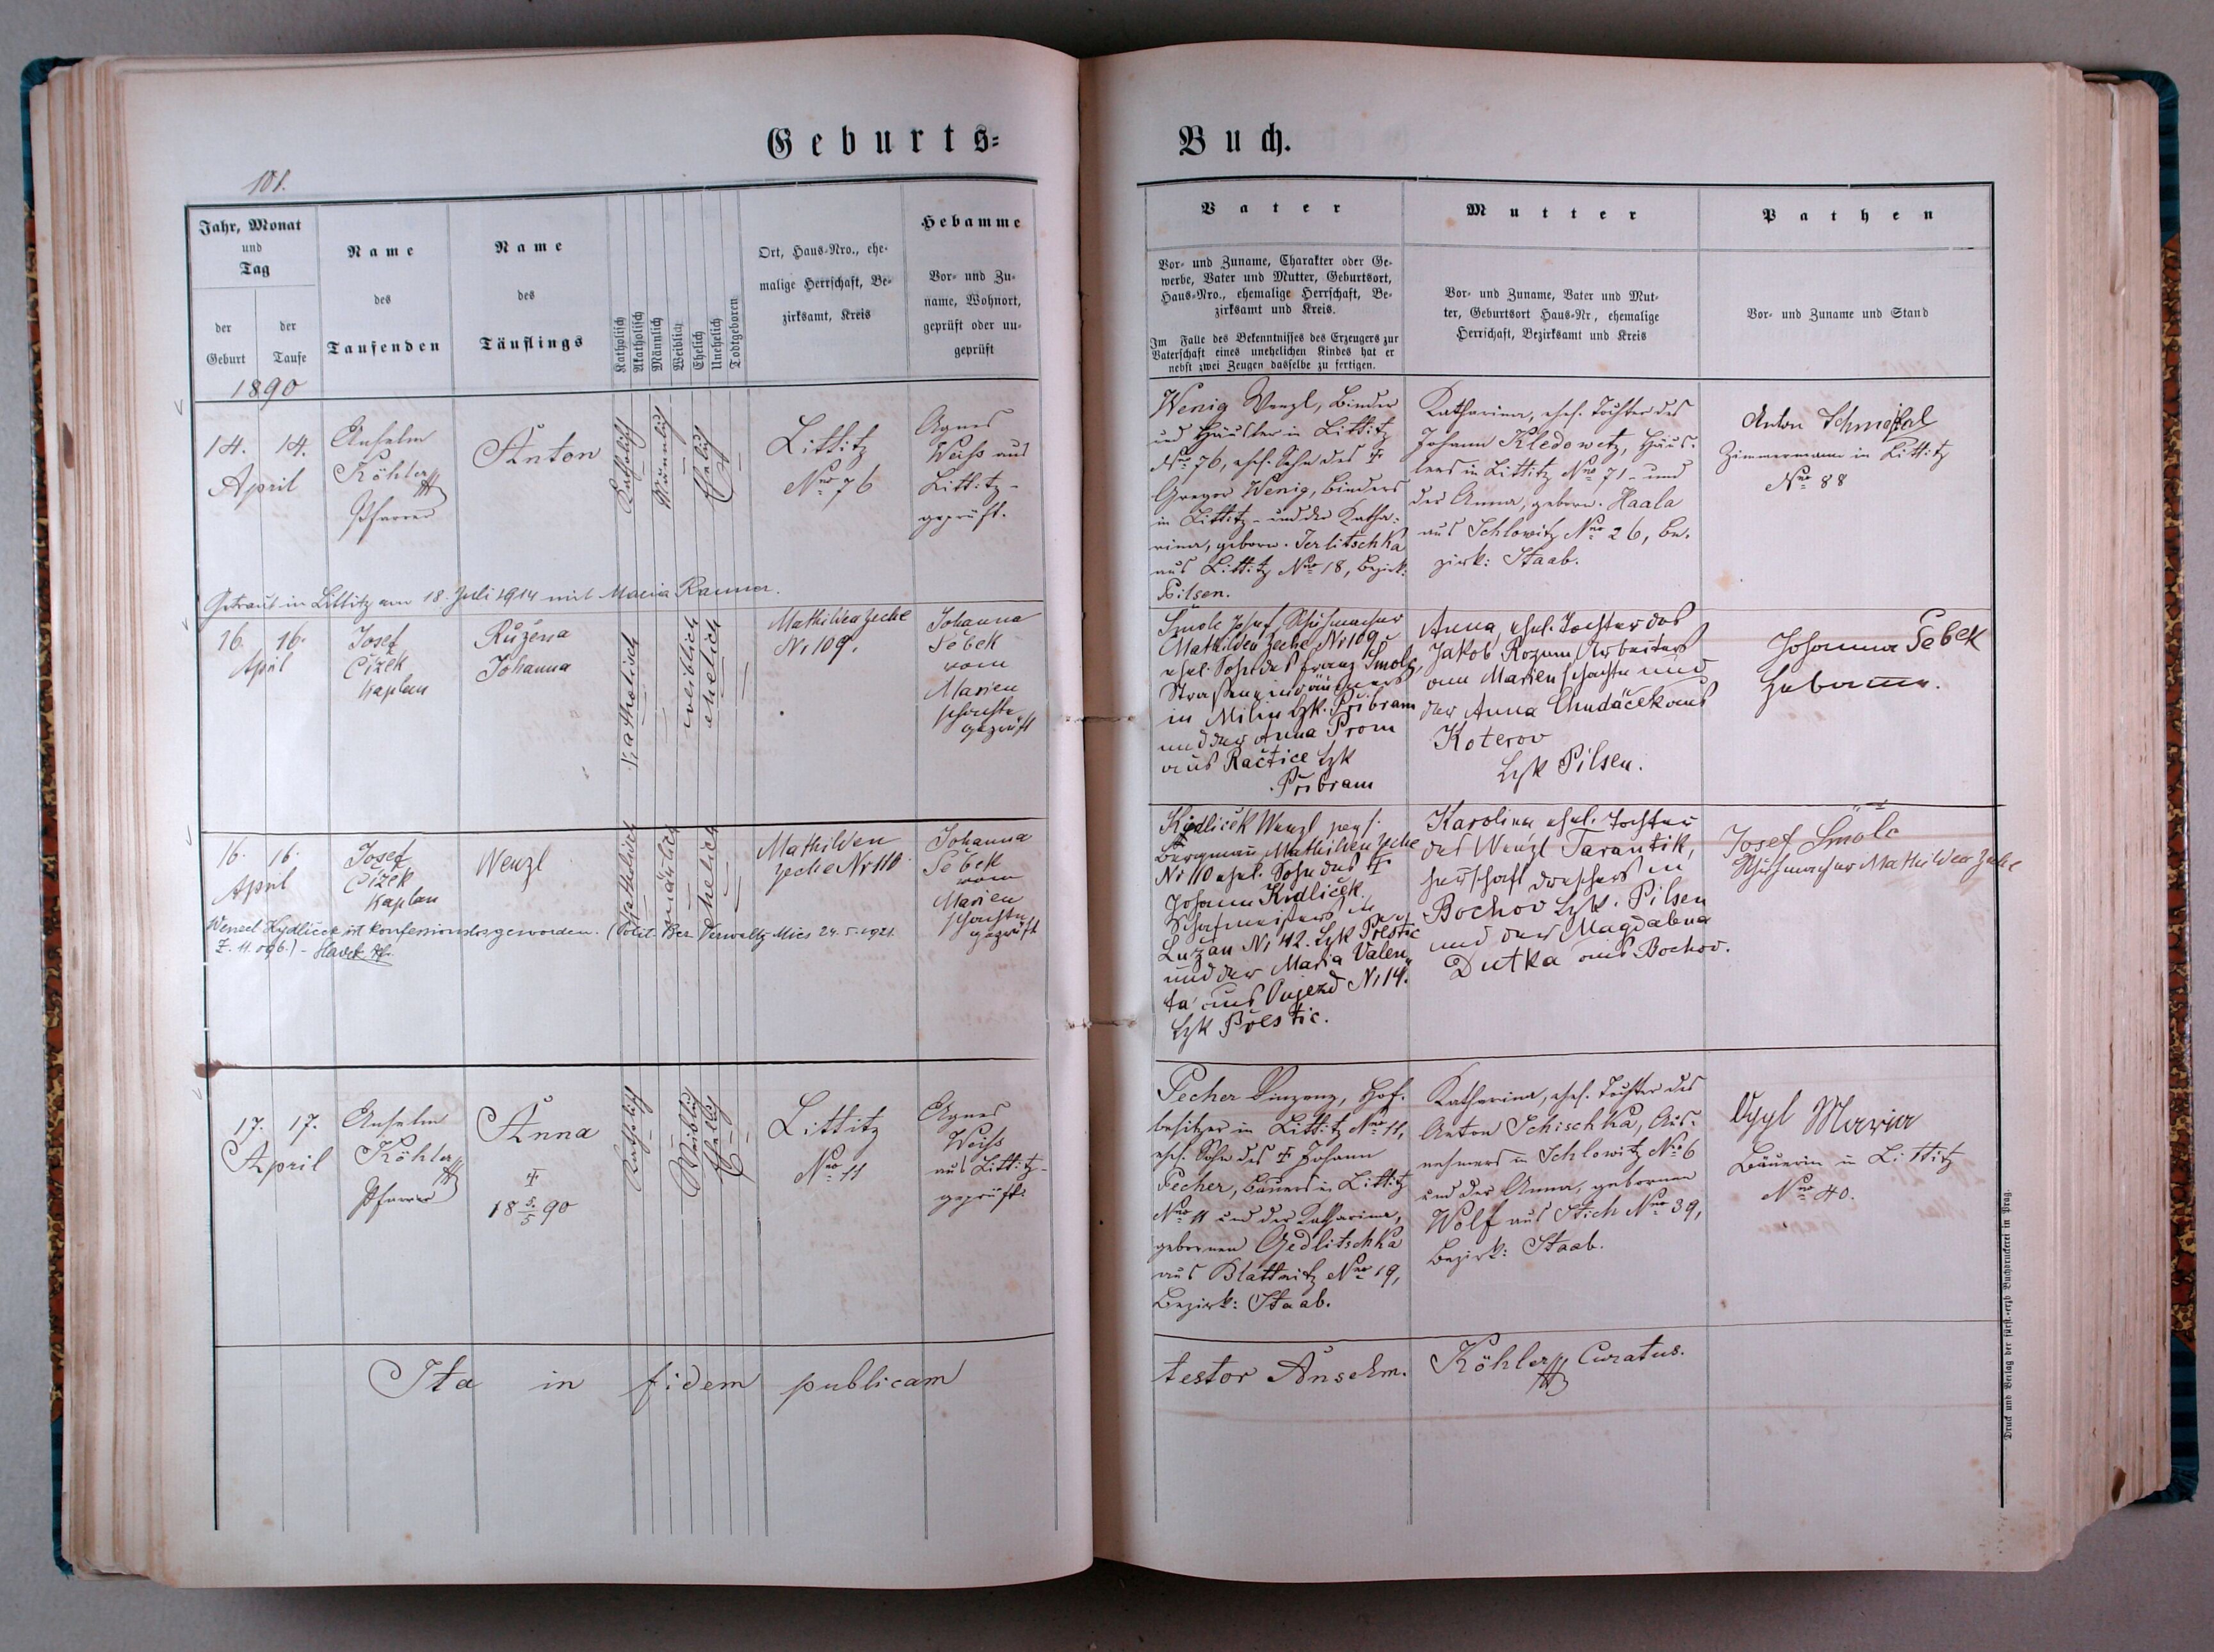 Geburts=
Buch.
101.
Jahr, Monat
und
Tag
der
Geburt
der
Taufe
Name
des
Taufenden
Name
des
Täuflings
Katholisch
Akatholisch
Männlich
Weiblich
Ehelich
Unehelich
Todtgeboren
Ort, Haus-Nro., ehe-
malige Herrschaft, Be-
zirksamt, Kreis
Hebamme
Vor- und Zu-
name, Wohnort,
geprüft oder un-
geprüft
Vater
Vor- und Zuname, Charakter oder Ge-
werbe, Vater und Mutter, Geburtsort,
Haus-Nro., ehemalige Herrschaft, Be-
zirksamt und Kreis.
Im Falle des Bekenntnisses des Erzeugers zur
Vaterschaft eines unehelichen Kindes hat er
nebst zwei Zeugen dasselbe zu fertigen.
Mutter
Vor- und Zuname, Vater und Mut-
ter, Geburtsort Haus-Nr., ehemalige
Herrschaft, Bezirksamt und Kreis
Pathen
Vor- und Zuname und Stand
1890
14. 14.
April
Anselm
Köhler
Pfarrer
Anton
Katholisch
Männlich
Ehelich
Littitz
Nro 76
Agnes
Weiß aus
Littitz -
geprüft.
Wenig Wenzl, Binder
und Häusler in Littitz
Nro 76, ehel. Sohn des †
Gregor Wenig, Binders
in Littitz - und der Katha-
rina, geborn. Terlitschka
aus Littitz Nro 18, Bezirk:
Pilsen.
Katharina, ehel. Tochter des
Johann Kledowetz, Häus-
lers in Littitz Nro 71 - und
der Anna, geborn. Haala
aus Schlowitz Nro 26, Be-
zirk: Staab.
Anton Schmid
Zimmermann in Littitz
Nro 88
Getraut in Littitz am 18. Juli 1914 mit Maria
16. 16.
April
Josef
Čížek
Kaplan
Růžena
Johanna
Katholisch
weiblich
ehelich
Mathildenzeche
Nr 109.
Johanna
Šebek
vom
Marien
schachte
geprüft
Smole Josef, Schuhmacher
Mathildenzeche Nr 109
ehel. Sohn des Franz Smole,
Straßeneinräumers
in Milin Bzk. Přibram
und der Anna Prom
aus Račtice Bzk
Přibram
Anna, ehel. Tochter des
Jakob Rozum Arbeiters
am Marienschachte und
der Anna Chudáček aus
Koterov
Bzk Pilsen.
Johanna Šebek
Hebamme.
16. 16.
April
Josef
Čížek
Kaplan
Wenzl
Katholisch
männlich
ehelich
Mathilden
zeche Nr 110
Johanna
Šebek
vom
Marien
schachte
geprüft
Wenzel Kydlicek ist konfessionslos geworden. (Polit. Bez. Verwaltg Mies 24. 5. 1921.
Z. 11.096.) - Havek
Kydlíček Wenzl
Bergmann, Mathildenzeche
Nr 110 ehel. Sohn des †
Johann Kydlíček
Schafmeisters in
Lužan Nr 42. Bzk Přestic
und der Maria Valen-
ta aus Oujezd Nr 14.
Bzk Přestic.
Karolina ehel. Tochter
des Wenzl Tarantik,
herrschaft dreschers in
Bochov Bzk. Pilsen
und der Magdalena
Dutka aus Bochov.
Josef Smole
Schuhmacher Mathildenzeche
17. 17.
April
Anselm
Köhler
Pfarrer
Anna
†
18 5./5 90
Katholisch
Weiblich
Ehelich
Littitz
Nro 11
Agnes
Weiß
aus Littitz -
geprüft.
Pecher Vinzenz, Hof-
besitzer in Littitz Nro 11,
ehel. Sohn des † Johann
Pecher, Bauers in Littitz
Nro 11 und der Katharina,
gebornen Gedlitschka
aus Blattnitz Nro 19,
Bezirk: Staab.
Katharina, ehel. Tochter des
Anton Schischka, Aus-
nehmers in Schlowitz Nro 6
und der Anna, gebornen
Wolf aus Stich Nro 39,
Bezirk: Staab.
Maria
Bäuerin in Littitz
Nro 40.
Ita in fidem publicam
testor Anselm. Köhler Curatus.
Druck und Verlag der fürst-erzb Buchdruckerei in Prag.